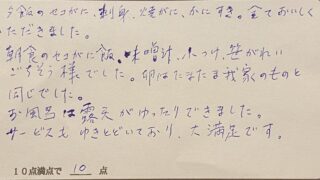 夕飯のセコガニ、刺身、焼がに、かにすき。全ておいしく
ただきました。
朝食のセコガニ飯、味噌汁、たつけ、笹がれい
ごちそう様でした。卵はたまたま我家のものと
同じでした。
お風呂は露天がゆったりできました。
サービスもゆきとどいており、大満足です。
10点満点で 10 点